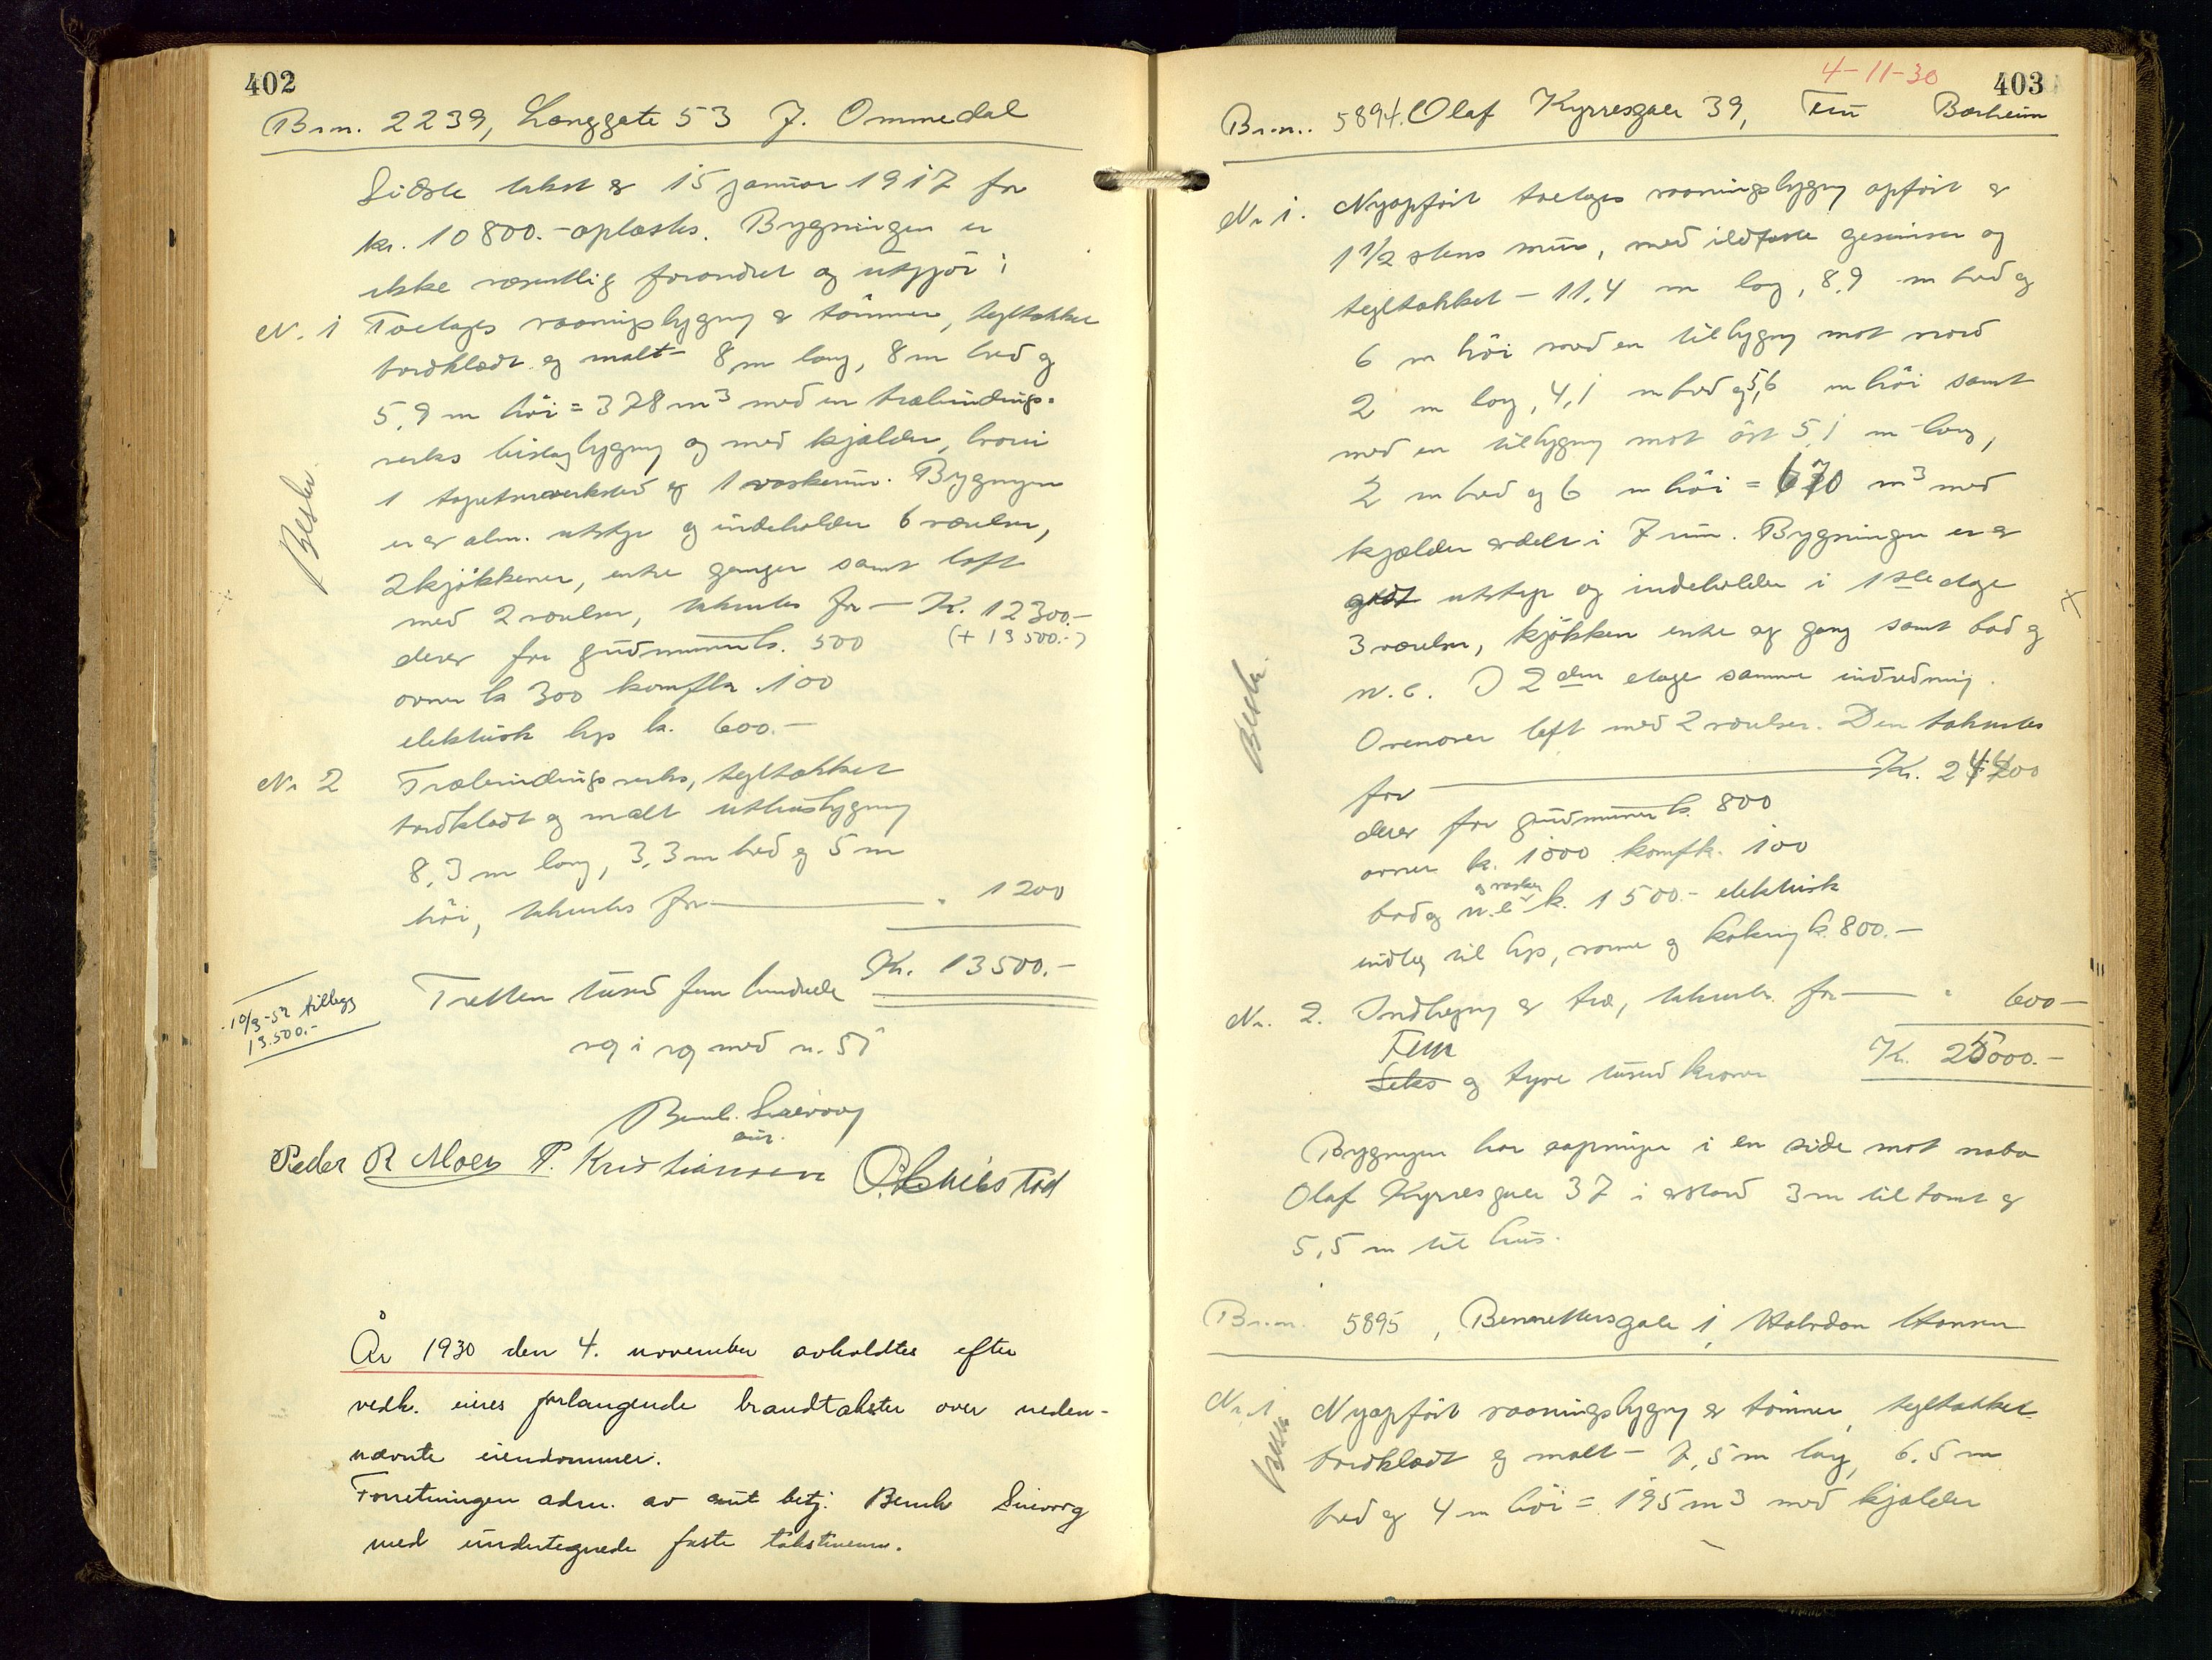 402
Br.n. 2239, Langgate 53 J. Ommedal
Sidste takst er 15 januar 1917 for
kr. 10800.- oplæstes. Bygningen er
ikke væsentlig forandret og utgjør:
N. 1 Toetages vaaningsbygning av tømmer, tegltækket
bordklædt og malt - 8 m lang, 8 m bred og
5,9 m høi = 378 m³ med en træbindings-
verks bislagbygning og med kjælder, hvori
1 tapetserverksted og 1 vaskerum. Bygningen
er av alm. utstyr og indeholder 6 værelser,
2 kjøkkener, entre ganger samt loft
med 2 værelser, takseres for — Kr. 12300.-
(+ 13500.-)
derav for grundmuren kr. 500
ovner kr 300 komfkr. 100
elektrisk lys kr. 600.-
Besku
Nr 2 Træbindingsverks, tegltækket
bordklædt og malt uthusbygning
8,3 m lang, 3,3 m bred og 5 m
høi, takseres for — " 1200
Kr. 13500.-
Tretten tused fem hundrede
10/3-52 tillegg
13.500.-
væg i væg med n. 51
Bernh. Sneivoog
Peder R Moen P. Kristiansen
År 1930 den 4. november avholdtes efter
vedk. eieres forlangende brandtakster over neden-
nævnte eiendommer.
Forretningen adm. av aut betj. Bernh Sneivoog
med undertegnede faste takstmenn.
4-11-30
403
Br.n. 5894. Olaf Kyrresgate 39, Finn Borheim
Nr 1. Nyopført toetages vaaningsbygning opført av
1 1/2 stens mur, med ildfaste gesimser og
tegltækket - 11,4 m lang, 8,9 m bred og
6 m høi med en tilbygning mot nord
2 m lang, 4,1 m bred og 5,6 m høi samt
med en tilbygning mot øst 5,1 m lang,
2 m bred og 6 m høi = 670 m³ med
kjælder avdelt i 7 rum. Bygningen er av
godt utstyr og indeholder i 1ste etage
3 værelser, kjøkken entre og gang samt bad og
w.c. I 2den etage samme indredning.
Ovenover loft med 2 værelser. Den takseres
for — Kr. 24400
derav for grundmuren kr. 800
ovner kr. 1000 komfk. 100
og vasker
bad og w.c kr. 1500.- elektrisk
indlæg til lys, varme og kokning kr. 800.-
Nr. 2. Indhegning av træ, takseres for — " 600-
Kr. 25000.-
Fem
Seks og tyve tused kroner
Bygningen har aapninger i en side mot nabo
Olaf Kyrresgate 37 i avstand 3 m til tomt og
5,5 m til hus.
Br.n. 5895, Bennettersgate 1, Halvdan Hansen
Nr. 1 Nyopført vaaningsbygning av tømmer, tegltækket
bordklædt og malt - 7,5 m lang, 6,5 m
bred og 4 m høi = 195 m3 med kjælder